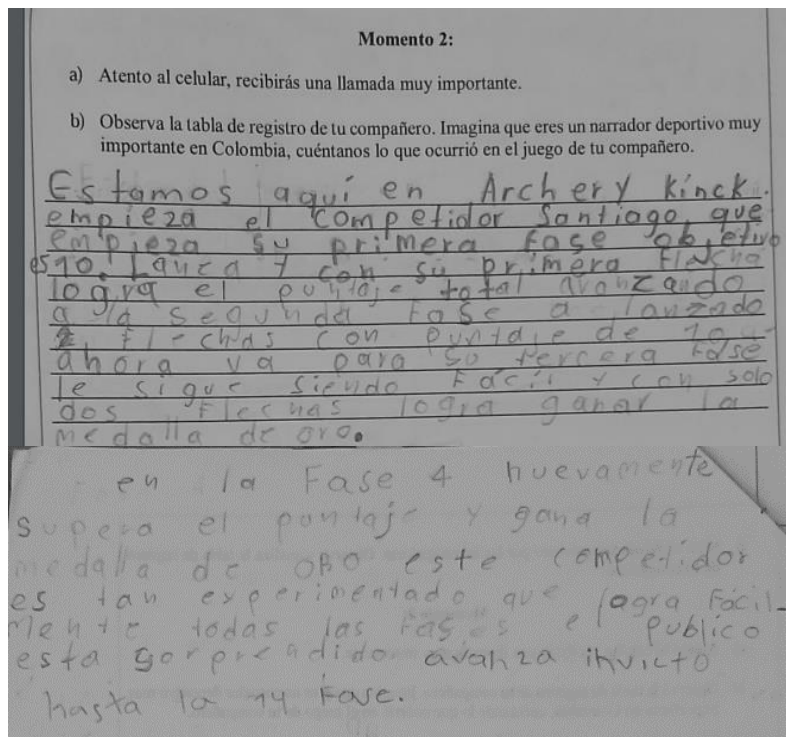 Momento 2:
a) Atento al celular, recibirás una llamada muy importante.
b) Observa la tabla de registro de tu compañero. Imagina que eres un narrador deportivo muy
importante en Colombia, cuéntanos lo que ocurrió en el juego de tu compañero.
Estamos aquí en Archery Kinck.
empieza el competidor Santiago, que
empieza su primera fase objetivo
es 10. Lanza y con su primera Flecha
logra el puntaje total avanzando
a la segunda Fase a lanzado
2 flechas con puntaje de 10
ahora va para su tercera Fase
le sigue siendo Facil y con solo
dos Flechas logra ganar la
medalla de oro.
en la Fase 4 nuevamente
supera el puntaje y gana la
medalla de ORO este competidor
es tan experimentado que logra Fácil-
Mente todas las Fases el publico
esta sorprendido avanza invicto
hasta la 14 Fase.